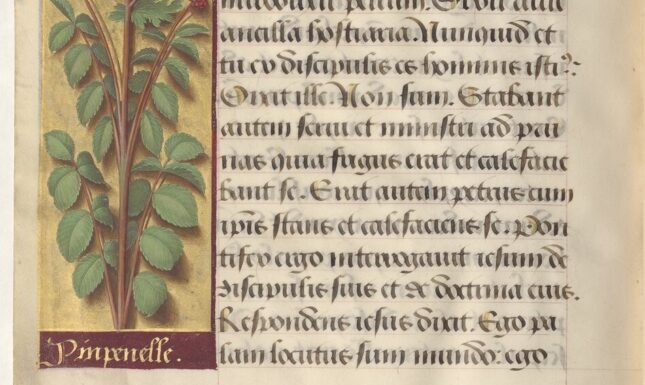 introduxit petrum. Dixit ancil
ancilla hostiaria. Nunquid et
tu ex discipulis es hominis isti⁹:
Dixit ille. Non sum. Stabant
autem serui et ministri ad pru
nas quia frigus erat et calefacie
bant se. Erat autem petrus cum
ipsis stans et calefaciens se. Pon
tifex ergo interrogauit iesum de
discipulis suis et de doctrina eius.
Respondens iesus dixit. Ego pa
lam locutus sum mundo: ego
Pinpenelle.